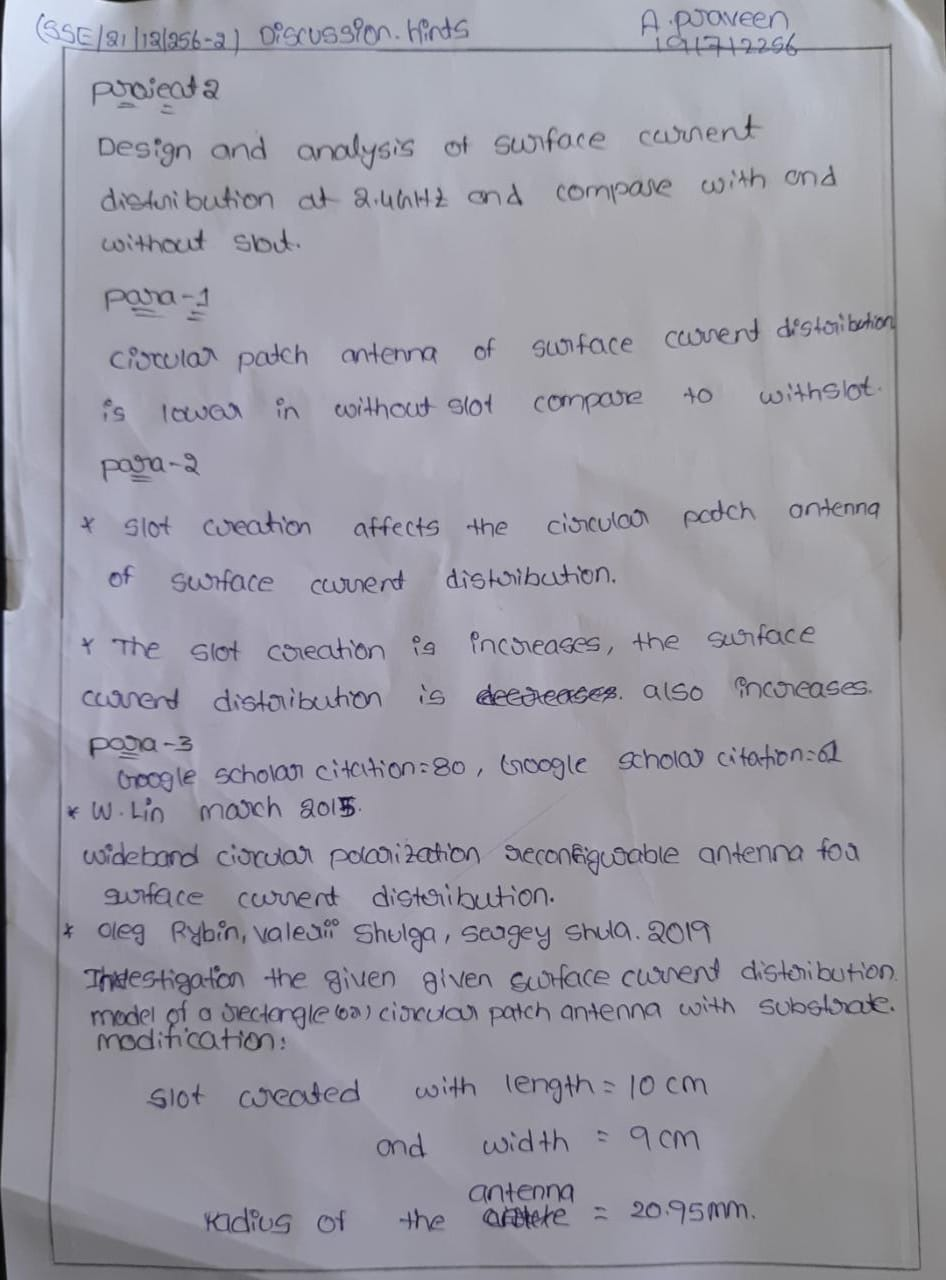 (SSE/21/12/256-2) Discussion. Hints
A. Praveen
191712256
project 2
Design and analysis of surface current
distribution at 2.4GHz and compare with and
without slot.
para-1
circular patch antenna of surface current distribution
is lower in without slot compare to withslot.
para-2
* slot creation affects the circular patch antenna
of surface current distribution.
* The slot creation is increases, the surface
current distribution is decreases. also increases.
para-3
Google scholar citation=80, Google scholar citation=62
* W. Lin march 2015.
wideband circular polarization reconfigurable antenna for
surface current distribution.
* oleg Rybin, valerii Shulga, sergey shula. 2019
Investigation the given given surface current distribution
model of a rectangle (or) circular patch antenna with substrate.
modification:
slot created with length = 10 cm
and width = 9 cm
antenna
radius of the = 20.95mm.